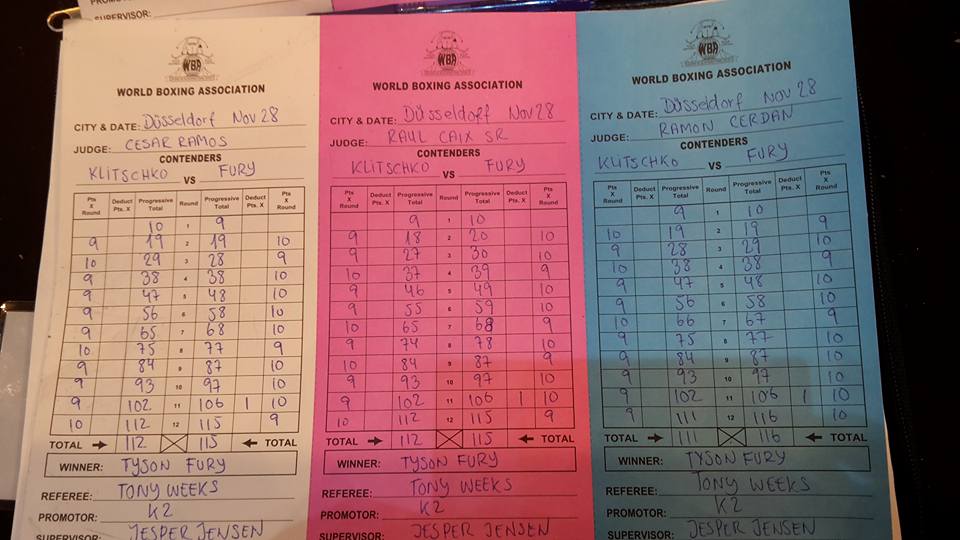 SUPERVISOR:
WBA
WORLD BOXING ASSOCIATION
CITY & DATE: Düsseldorf Nov 28
JUDGE: CESAR RAMOS
CONTENDERS
KLITSCHKO VS FURY
Pts X Round Deduct Pts. X Progressive Total Round Progressive Total Deduct Pts. X Pts X Round
10 1 9
9 19 2 19 10
10 29 3 28 9
9 38 4 38 10
9 47 5 48 10
9 56 6 58 10
9 65 7 68 10
10 75 8 77 9
9 84 9 87 10
9 93 10 97 10
9 102 11 106 1 10
10 112 12 115 9
TOTAL 112 115 TOTAL
WINNER: TYSON FURY
REFEREE: TONY WEEKS
PROMOTOR: K2
SUPERVISOR: JESPER JENSEN
WBA
WORLD BOXING ASSOCIATION
CITY & DATE: Düsseldorf Nov 28
JUDGE: RAUL CAIX SR
CONTENDERS
KLITSCHKO VS FURY
Pts X Round Deduct Pts. X Progressive Total Round Progressive Total Deduct Pts. X Pts X Round
9 1 10
9 18 2 20 10
9 27 3 30 10
10 37 4 39 9
9 46 5 49 10
9 55 6 59 10
10 65 7 68 9
9 74 8 78 10
10 84 9 87 9
9 93 10 97 10
9 102 11 106 1 10
10 112 12 115 9
TOTAL 112 115 TOTAL
WINNER: TYSON FURY
REFEREE: TONY WEEKS
PROMOTOR: K2
SUPERVISOR: JESPER JENSEN
WBA
WORLD BOXING ASSOCIATION
CITY & DATE: Düsseldorf Nov 28
JUDGE: RAMON CERDAN
CONTENDERS
KLITSCHKO VS FURY
Pts X Round Deduct Pts. X Progressive Total Round Progressive Total Deduct Pts. X Pts X Round
9 1 10
10 19 2 19 9
9 28 3 29 10
10 38 4 38 9
9 47 5 48 10
9 56 6 58 10
10 66 7 67 9
9 75 8 77 10
9 84 9 87 10
9 93 10 97 10
9 102 11 106 1 10
9 111 12 116 10
TOTAL 111 116 TOTAL
WINNER: TYSON FURY
REFEREE: TONY WEEKS
PROMOTOR: K2
SUPERVISOR: JESPER JENSEN